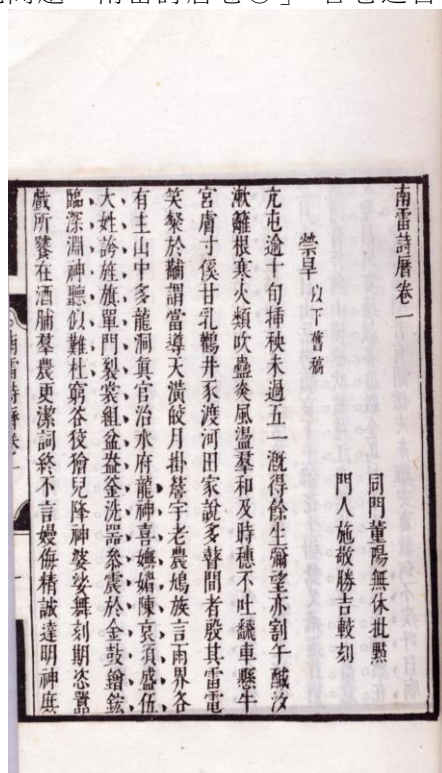 南雷詩曆卷一
同門董陽無休批點
門人施敬勝吉較刻
禜旱以下舊稿
亢屯逾十旬揷秧未過五一溉得餘生彌望亦割午醎汝
漱籬根寒火類吹蠱炎風溫羣和及時穗不吐飄車懸牛
宮膚寸徯甘乳鸛井不渡河田家說多聱間者殷其雷電
笑粲於黼謂當導天潢皎月掛蔀宇老農鳩族言雨界各
有主山中多龍洞眞官治水府龍神喜嫵媚陳哀須盛伍
大姓誇旌旗單門製裳組盆盎釜洗器參震於金鼓鐕鋐
臨深淵神聽似難杜窮谷狡獪兒降神婆娑舞刻期恣囂
戲所饕在酒脯羣農更潔詞終不言嫚侮精誠達明神庶
南雷詩曆卷一